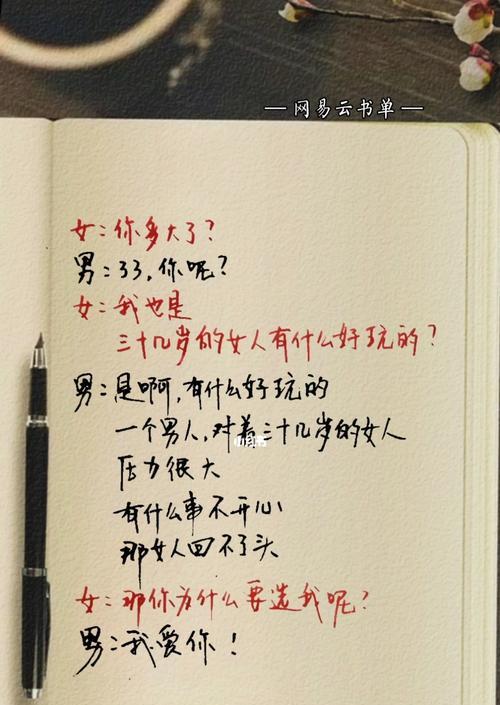 — 网易云书单 —
女：你多大了？
男：33，你呢？
女：我也是
三十几岁的女人有什么好玩的？
男：是啊，有什么好玩的
一个男人，对着三十几岁的女人
小红书
压力很大
有什么事不开心
那女人回不了头
女：那你为什么要选我呢？
男：我爱你！